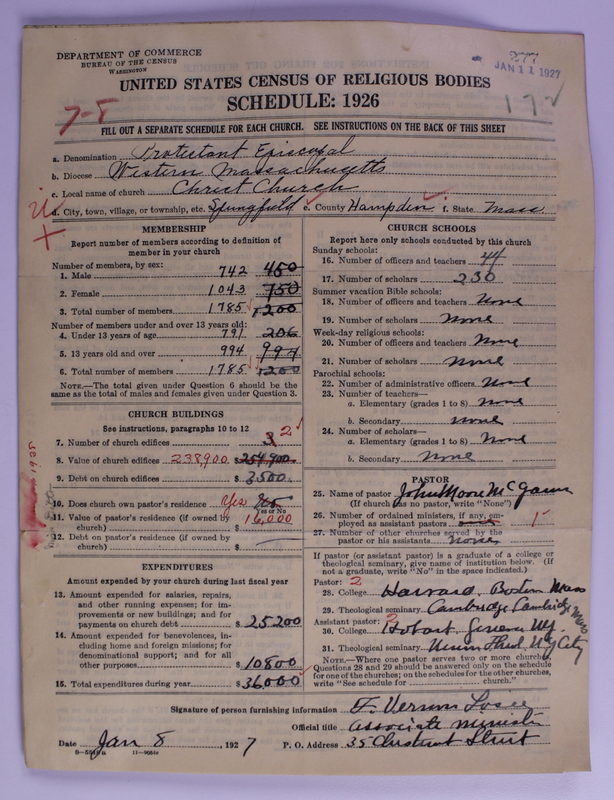 DEPARTMENT OF COMMERCE
BUREAU OF THE CENSUS
WASHINGTON
JAN 11 1927
UNITED STATES CENSUS OF RELIGIOUS BODIES
SCHEDULE: 1926
7-8
172
FILL OUT A SEPARATE SCHEDULE FOR EACH CHURCH. SEE INSTRUCTIONS ON THE BACK OF THIS SHEET
a. Denomination Protestant Episcopal
b. Diocese Western Massachusetts
c. Local name of church Christ Church
d. City, town, village, or township, etc. Springfield e. County Hampden f. State Mass.
MEMBERSHIP
Report number of members according to definition of
member in your church
Number of members, by sex:
1. Male 742 450
2. Female 1043 750
3. Total number of members 1785 1200
Number of members under and over 13 years old:
4. Under 13 years of age 791 206
5. 13 years old and over 994 994
6. Total number of members 1785 1200
NOTE.—The total given under Question 6 should be the
same as the total of males and females given under Question 3.
CHURCH BUILDINGS
See instructions, paragraphs 10 to 12
7. Number of church edifices 3 2
8. Value of church edifices 238900 $ 254,900
9. Debt on church edifices $ 3,500
10. Does church own pastor's residence Yes
Yes or No
11. Value of pastor's residence (if owned by
church) $ 16,000
12. Debt on pastor's residence (if owned by
church) $
EXPENDITURES
Amount expended by your church during last fiscal year
13. Amount expended for salaries, repairs,
and other running expenses; for im-
provements or new buildings; and for
payments on church debt $ 25200
14. Amount expended for benevolences, in-
cluding home and foreign missions; for
denominational support; and for all
other purposes $ 10800
15. Total expenditures during year $ 36,000
CHURCH SCHOOLS
Report here only schools conducted by this church
Sunday schools:
16. Number of officers and teachers 44
17. Number of scholars 230
Summer vacation Bible schools:
18. Number of officers and teachers None
19. Number of scholars None
Week-day religious schools:
20. Number of officers and teachers None
21. Number of scholars None
Parochial schools:
22. Number of administrative officers None
23. Number of teachers—
a. Elementary (grades 1 to 8) None
b. Secondary None
24. Number of scholars—
a. Elementary (grades 1 to 8) None
b. Secondary None
PASTOR
25. Name of pastor John Moore McGann
(If church has no pastor, write "None")
26. Number of ordained ministers, if any, em-
ployed as assistant pastors 1
27. Number of other churches served by the
pastor or his assistants None
If pastor (or assistant pastor) is a graduate of a college or
theological seminary, give name of institution below. (If
not a graduate, write "No" in the space indicated.)
Pastor: 2
28. College Harvard, Boston Mass
29. Theological seminary Cambridge Cambridge Mass
Assistant pastor: 2
30. College Hobart, Geneva NY.
31. Theological seminary Union Theol. NY City
NOTE.—Where one pastor serves two or more churches,
Questions 28 and 29 should be answered only on the schedule
for one of the churches; on the schedules for the other churches,
write "See schedule for church."
Signature of person furnishing information F. Vernon Losee
Official title Associate Minister
Date Jan 8, 1927 P. O. Address 35 Chestnut Street